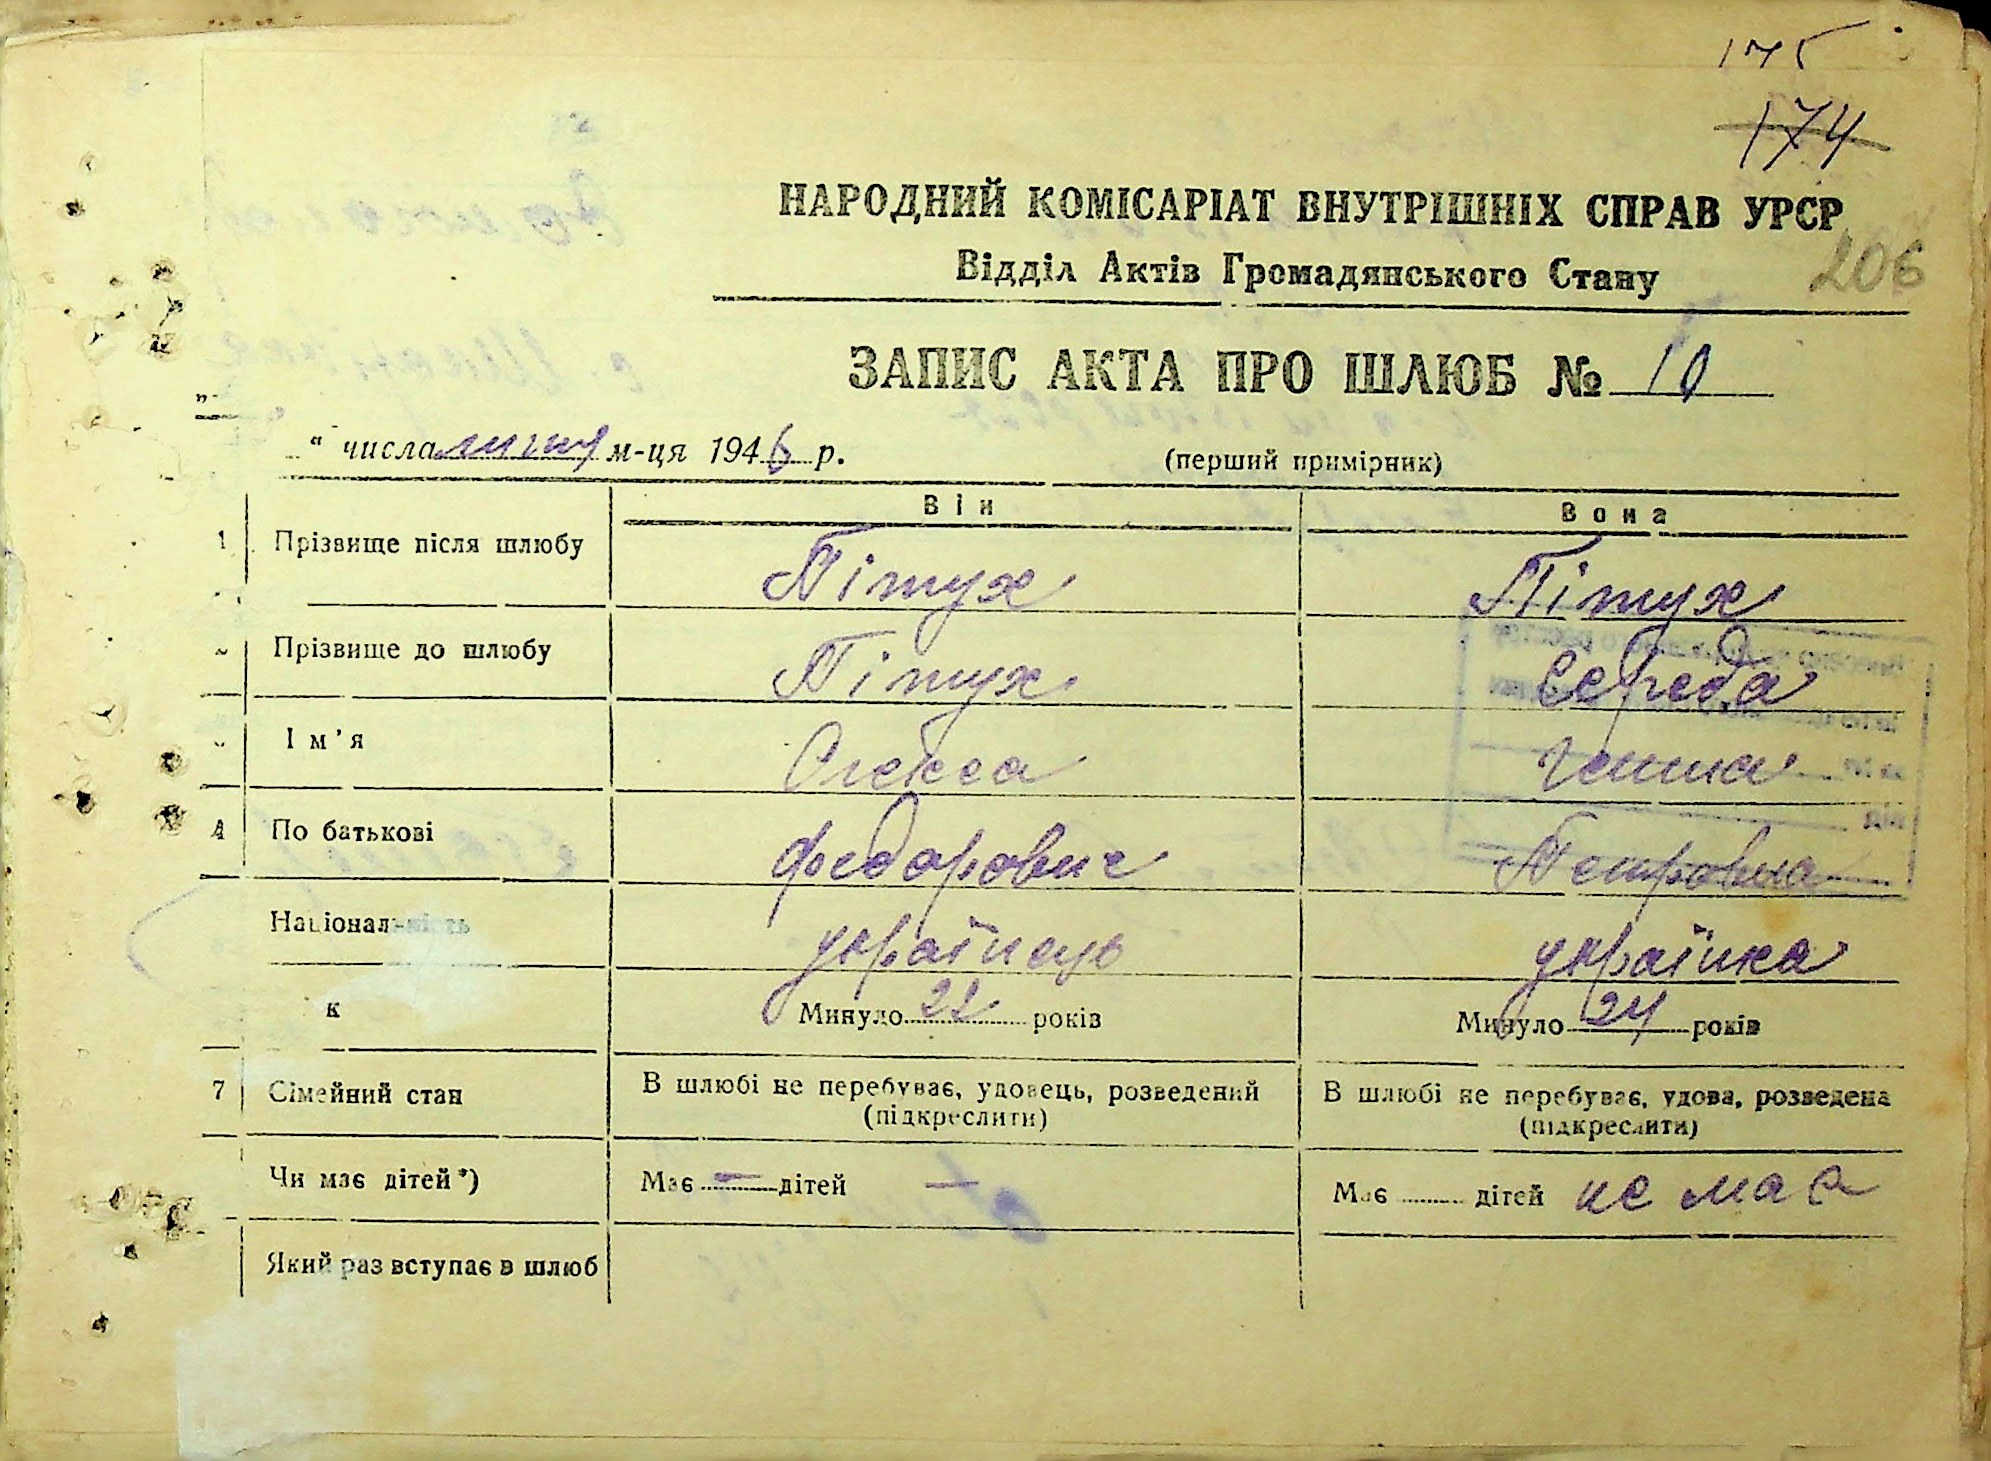 175
174
НАРОДНИЙ КОМІСАРІАТ ВНУТРІШНІХ СПРАВ УРСР
206
Відділ Актів Громадянського Стану
ЗАПИС АКТА ПРО ШЛЮБ № 10
" числа липня м-ця 1946 р.
(перший примірник)
Він Вона
1 Прізвище після шлюбу Пітух Пітух
Прізвище до шлюбу Пітух Середа
Ім'я Олекса Ганна
4 По батькові Федорович Петровна
Національність українець українка
к Минуло 22 років Минуло 24 років
7 Сімейний стан В шлюбі не перебуває, удовець, розведений В шлюбі не перебуває, удова, розведена
(підкреслити) (підкреслити)
Чи має дітей*) Має — дітей — Має дітей не має
Який раз вступає в шлюб